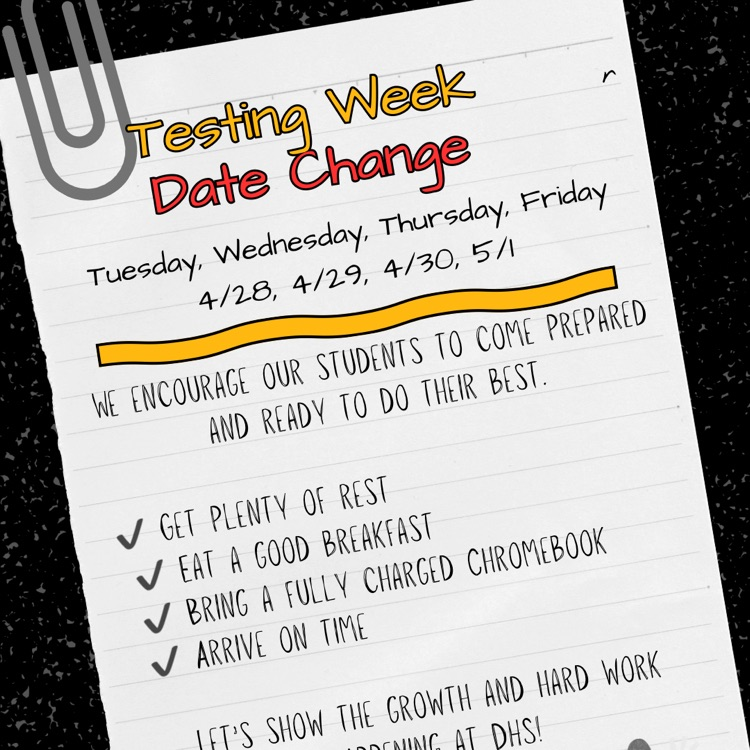 r
Testing Week
Date Change
Tuesday, Wednesday, Thursday, Friday
4/28, 4/29, 4/30, 5/1
WE ENCOURAGE OUR STUDENTS TO COME PREPARED
AND READY TO DO THEIR BEST.
GET PLENTY OF REST
EAT A GOOD BREAKFAST
BRING A FULLY CHARGED CHROMEBOOK
ARRIVE ON TIME
LET'S SHOW THE GROWTH AND HARD WORK
AT DHS!